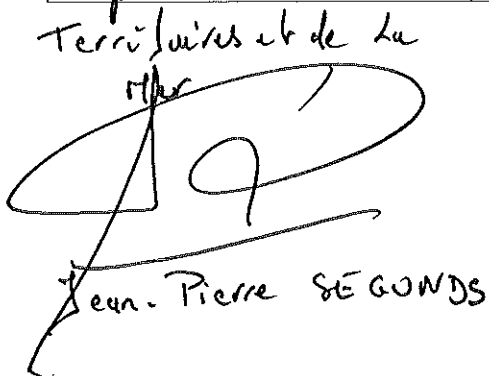 Territoires et de La
Mer
Jean-Pierre SEGONDS